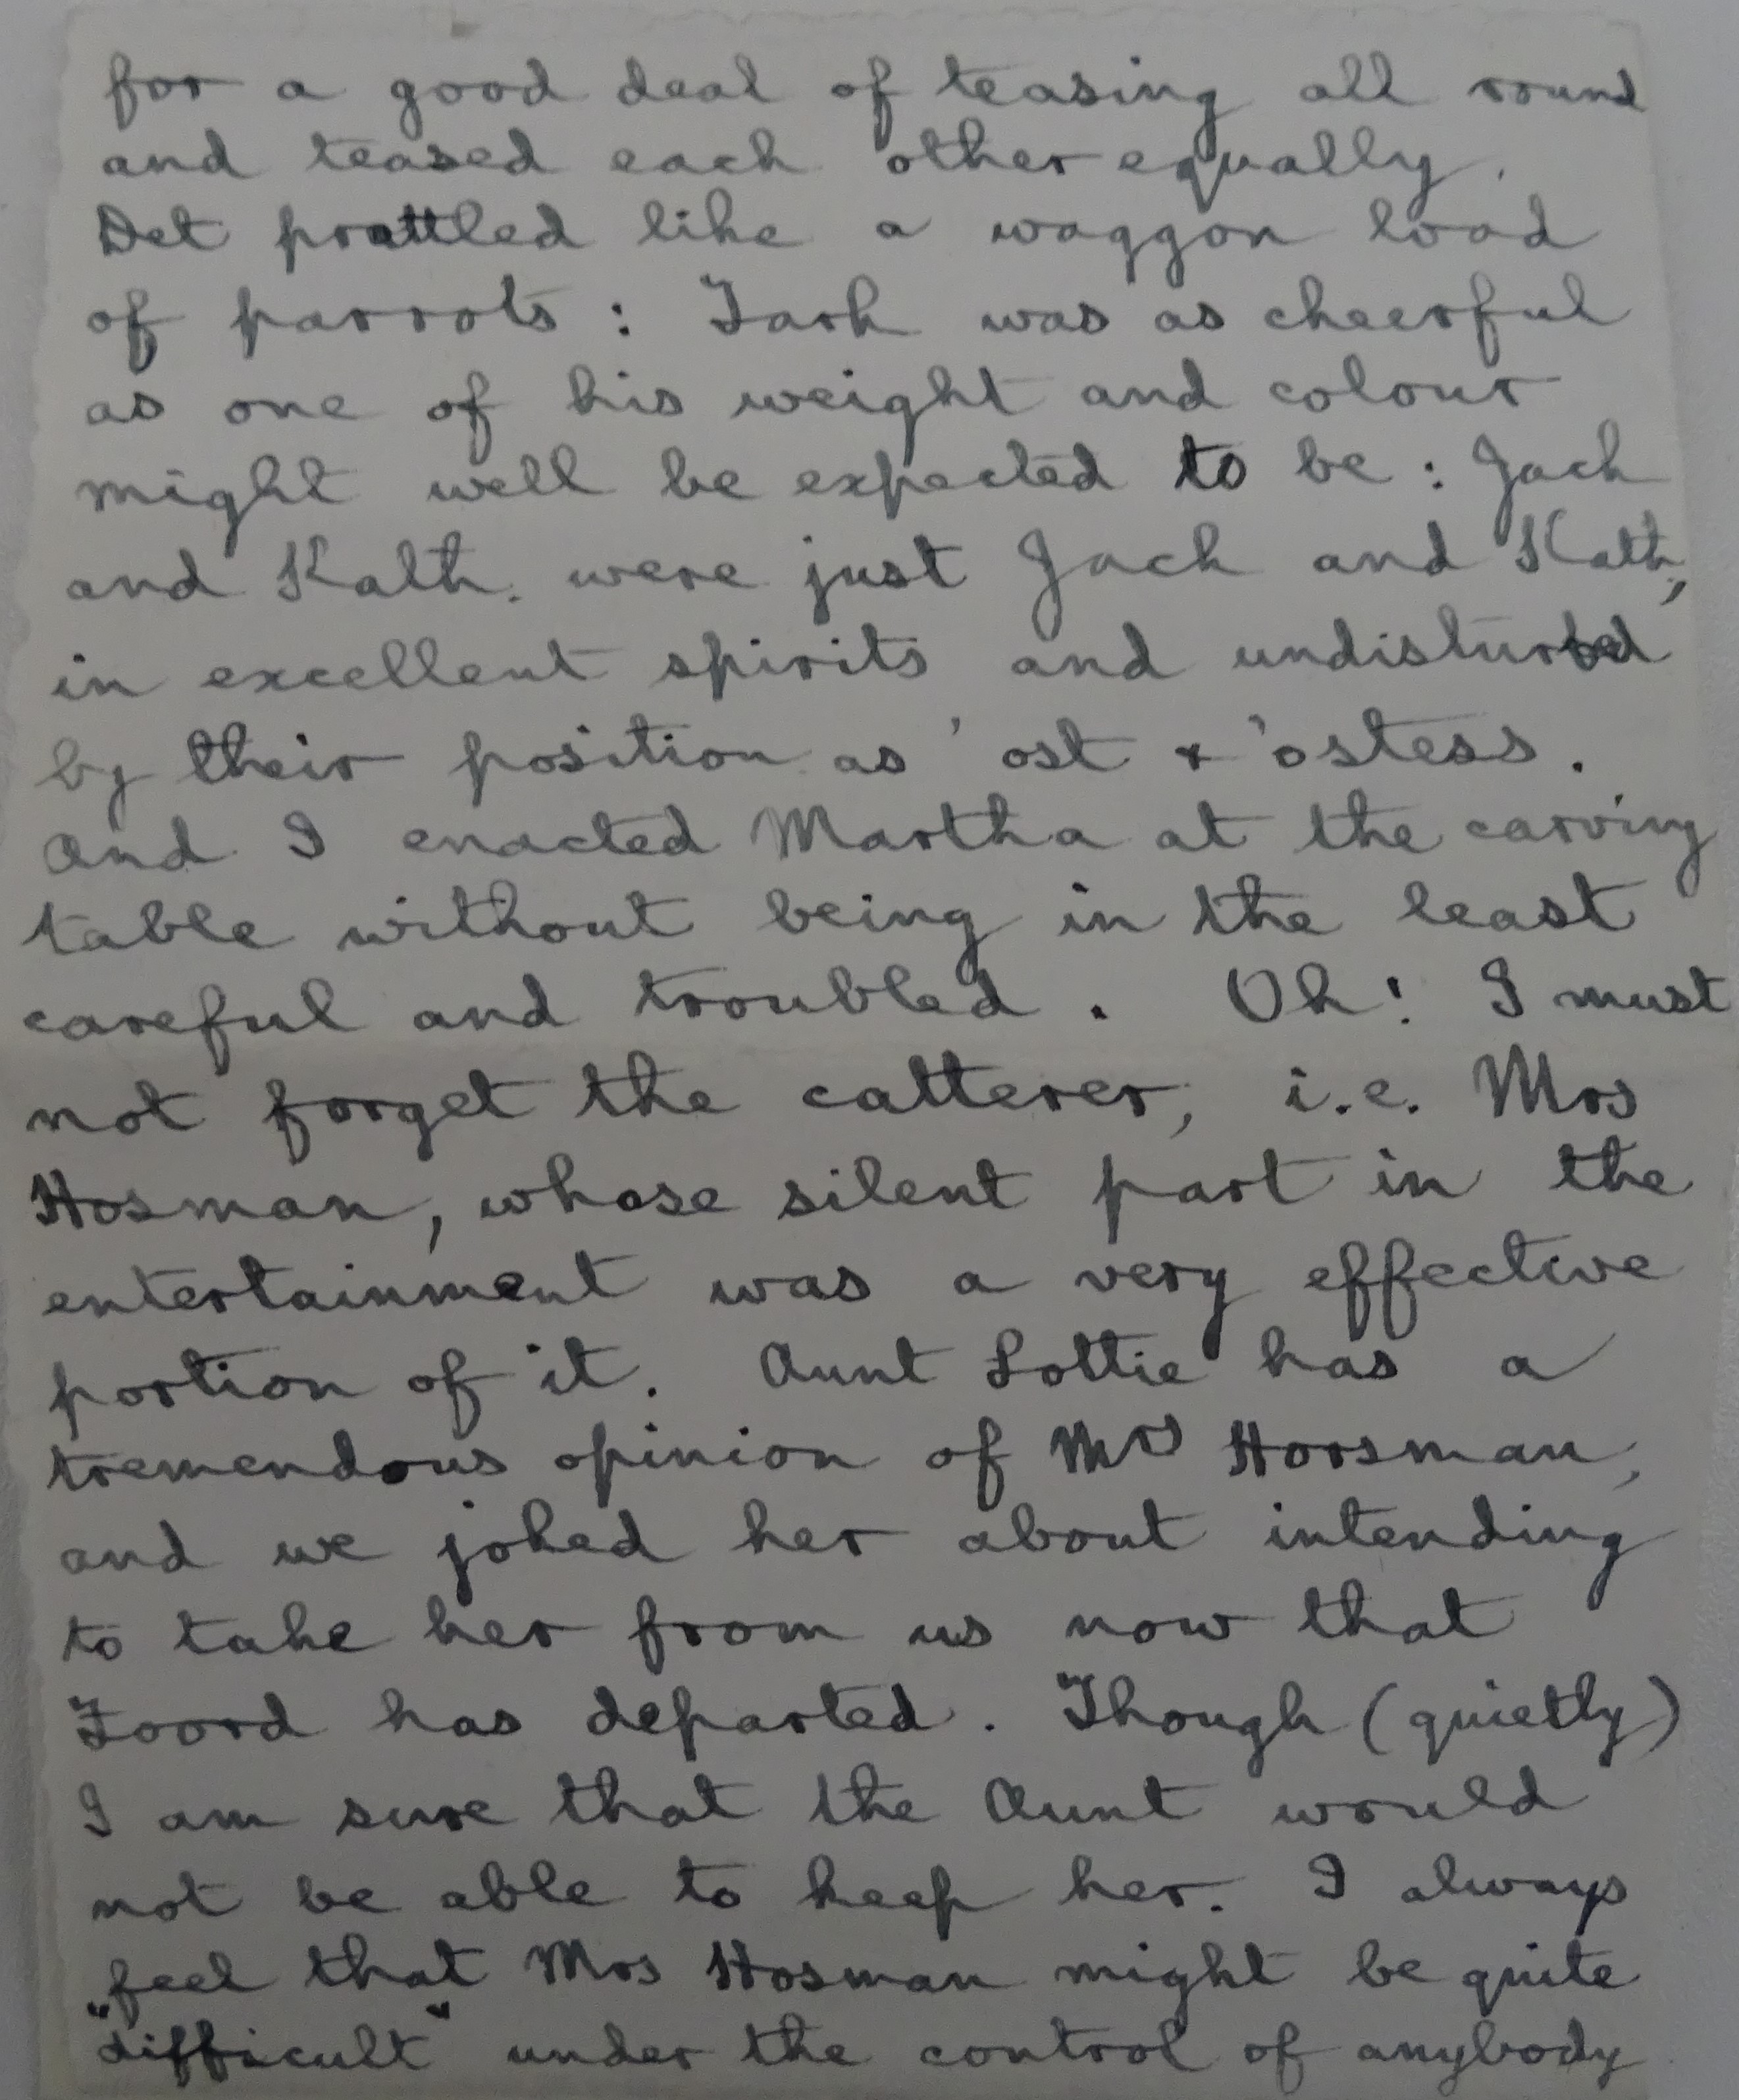 for a good deal of teasing all round
and teased each other equally.
Det prattled like a waggon load
of parrots : Tark was as cheerful
as one of his weight and colour
might well be expected to be : Jack
and Kath. were just Jack and Kath,
in excellent spirits and undisturbed
by their position as 'ost & 'ostess.
And I enacted Martha at the carving
table without being in the least
careful and troubled. Oh! I must
not forget the catterer, i.e. Mrs
Hosman, whose silent part in the
entertainment was a very effective
portion of it. Aunt Lottie has a
tremendous opinion of Mrs Horsman,
and we joked her about intending
to take her from us now that
Foord has departed. Though (quietly)
I am sure that the Aunt would
not be able to keep her. I always
feel that Mrs Hosman might be quite
"difficult" under the control of anybody